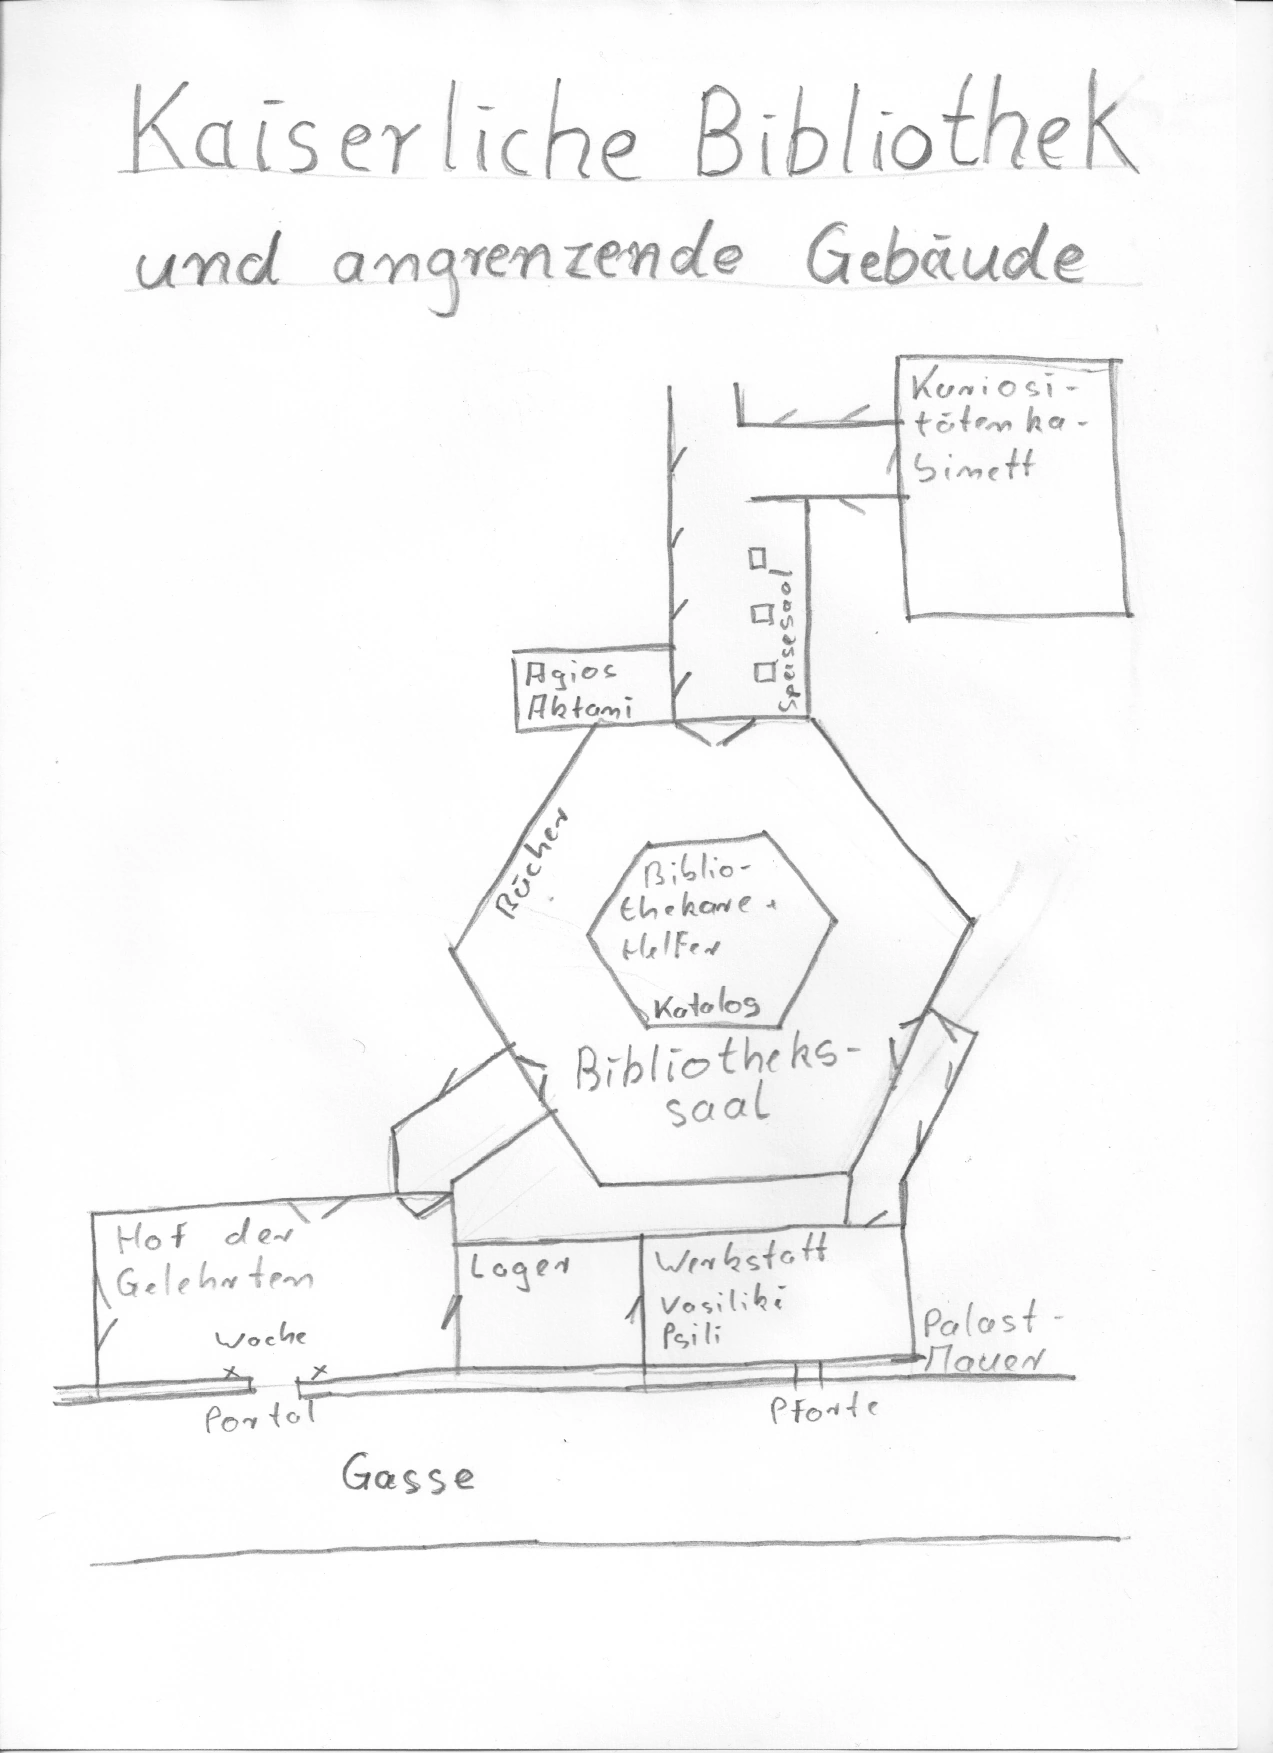 Kaiserliche Bibliothek
und angrenzende Gebäude
Kuriosi-
tätenka-
binett
Speisesaal
Agios
Aktami
Bücher
Biblio-
thekare +
Helfer
Katalog
Bibliotheks-
saal
Hof der
Gelehrten
Wache
x x
Lager
Werkstatt
Vasiliki
Psili
Palast-
Mauer
Portal
Pforte
Gasse